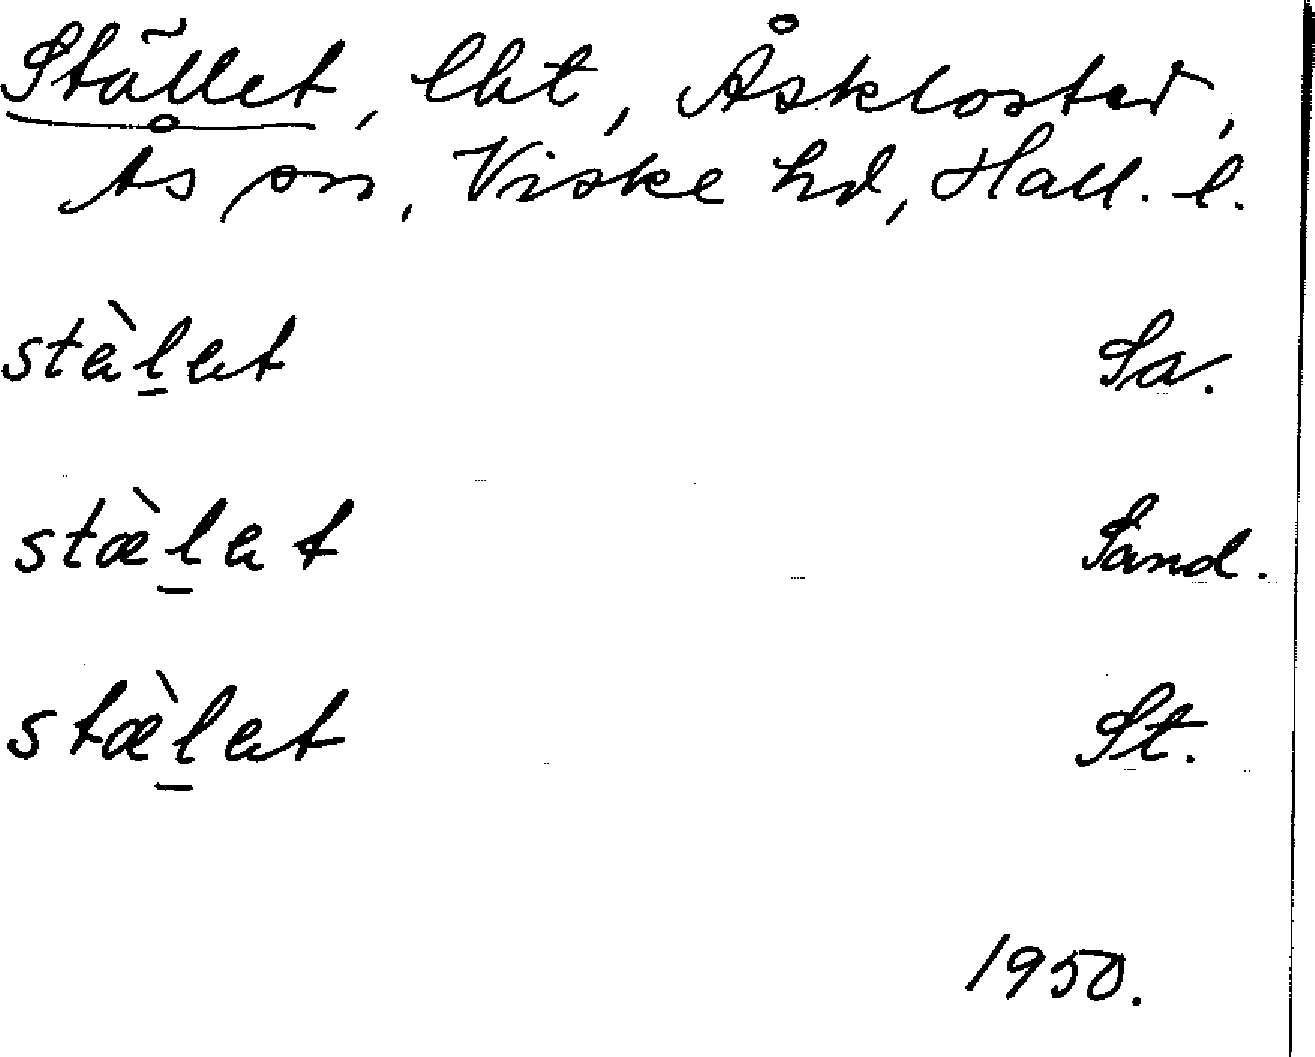 Stället, lht, Åskloster,
Ås sn, Viske hd, Hall. l.
stæ̀l̠ət Sa.
stæ̀l̠ət Sand.
stæ̀l̠ət St.
1950.